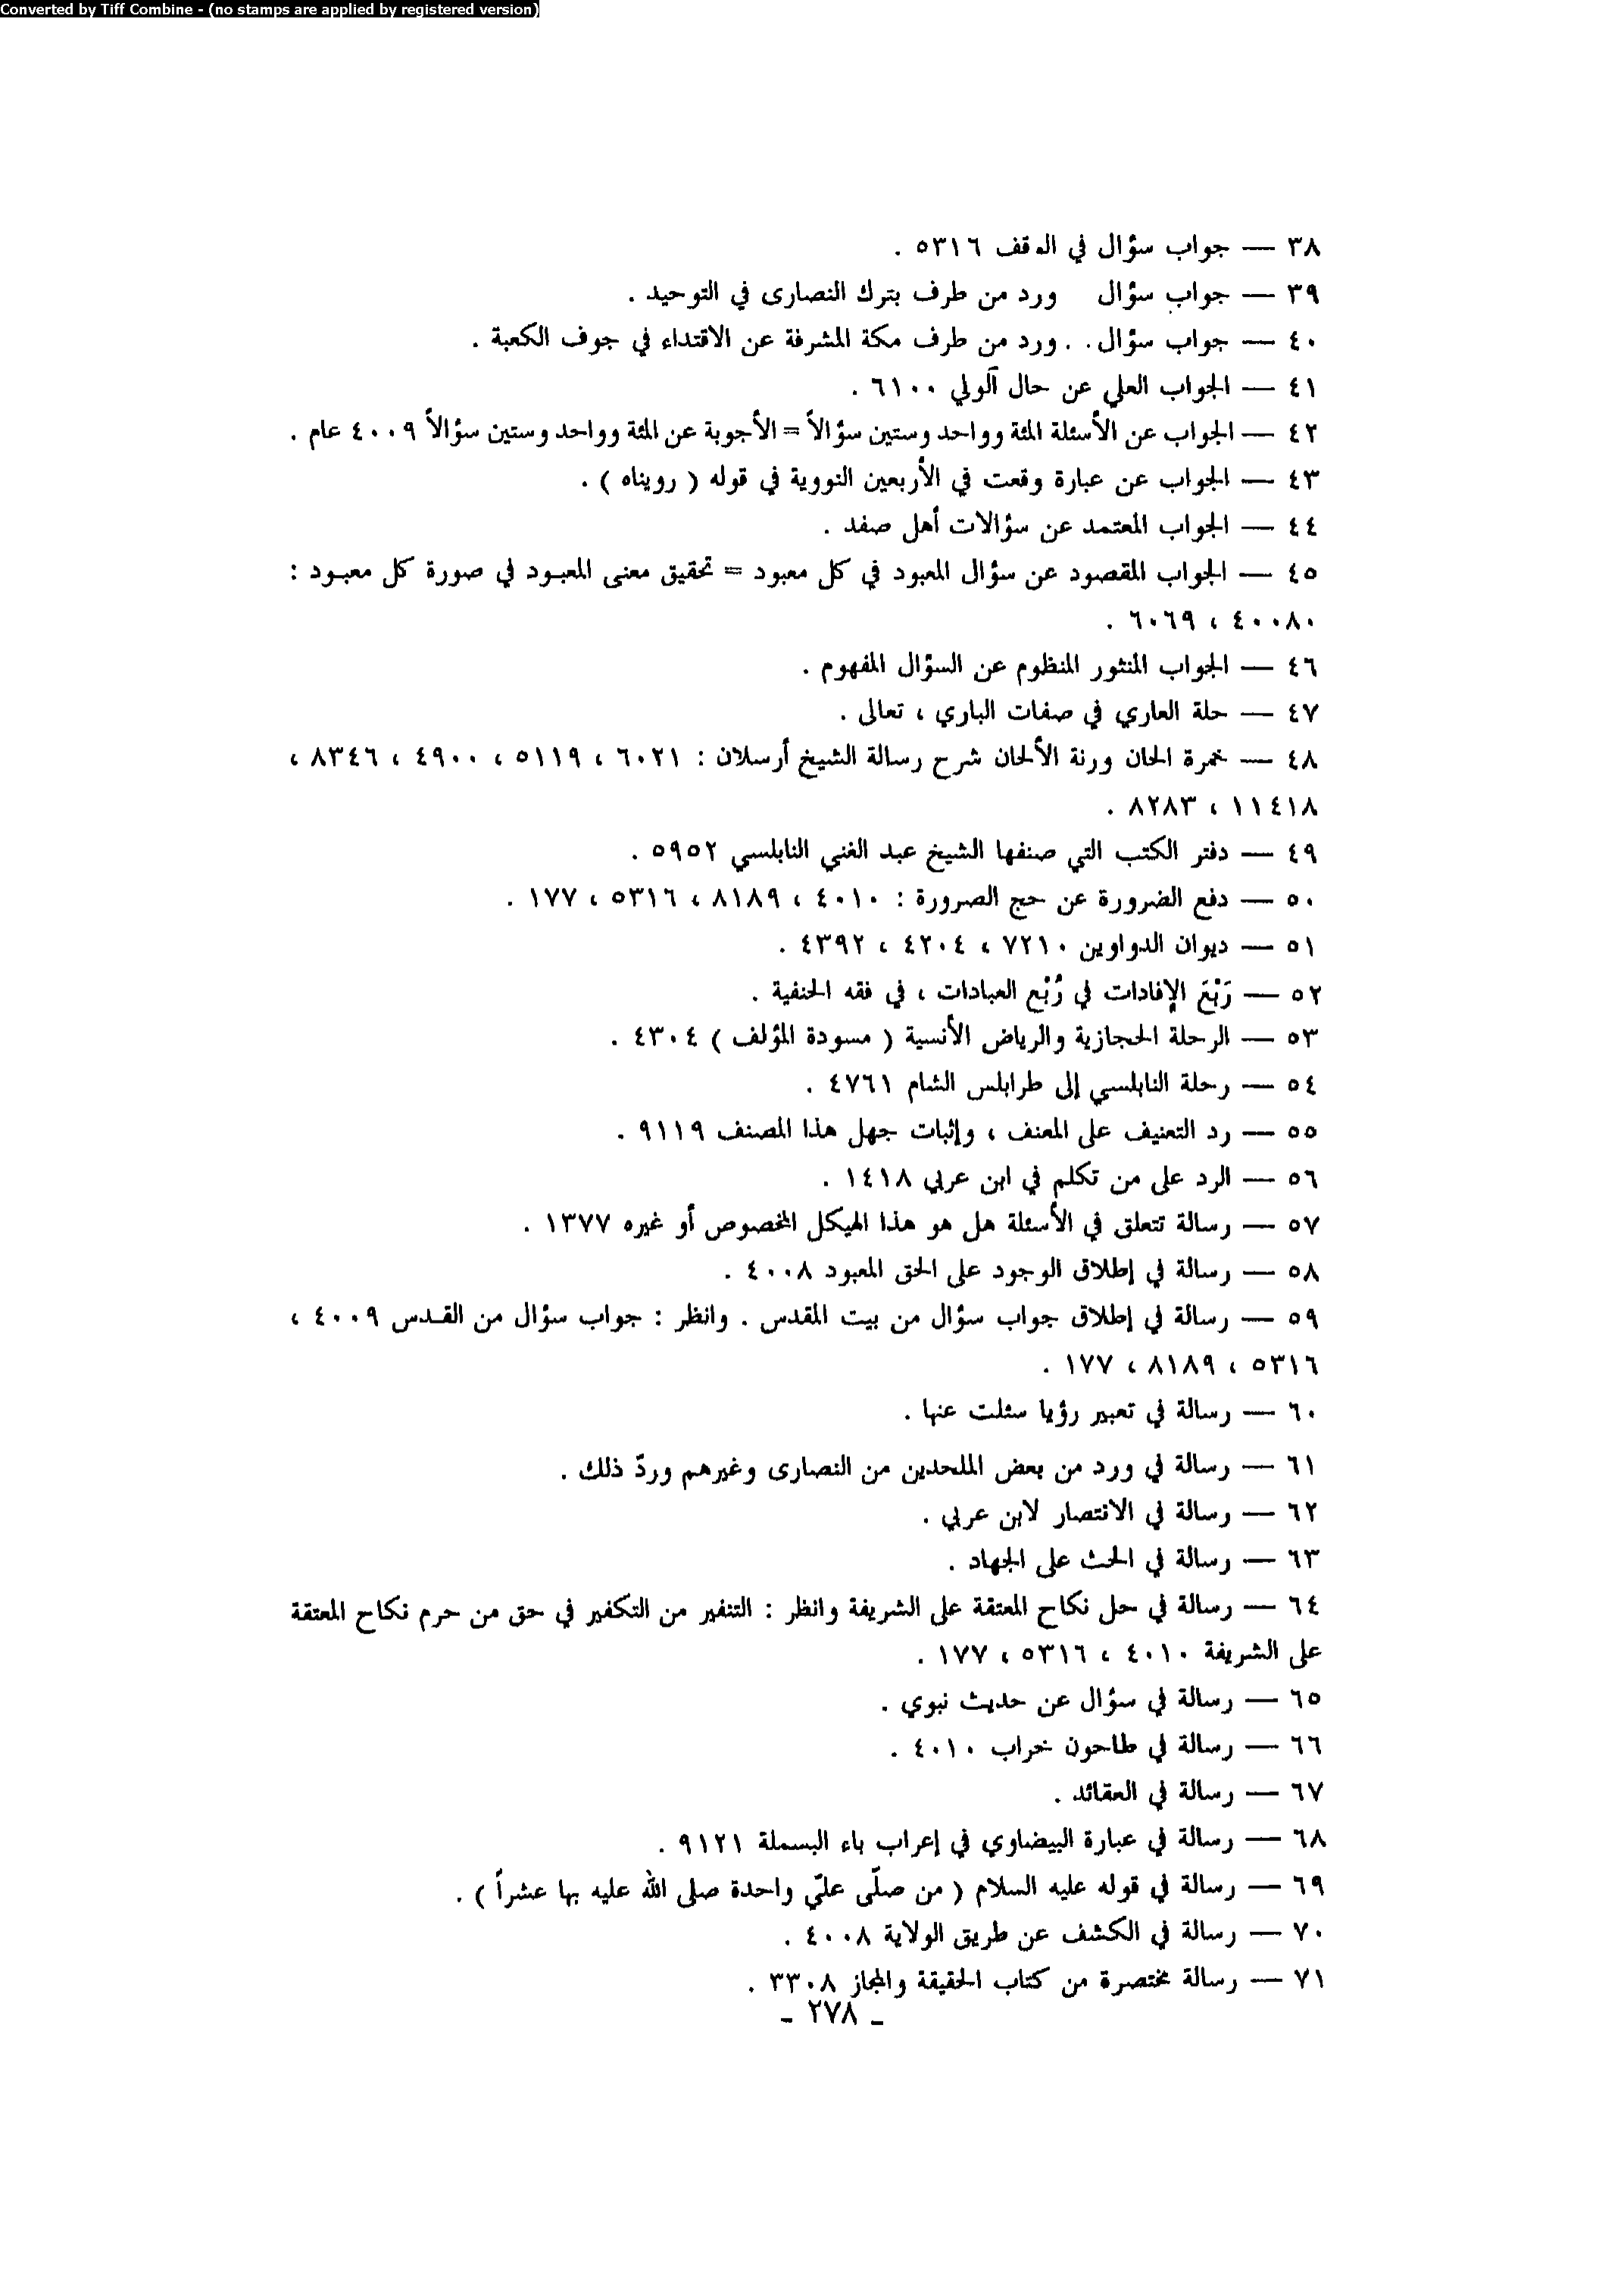 Converted by Tiff Combine - (no stamps are applied by registered version)
٣٨ — جواب سؤال في الوقف ٥٣١٦ .
٣٩ — جواب سؤال ورد من طرف بترك النصارى في التوحيد .
٤٠ — جواب سؤال . . ورد من طرف مكة المشرفة عن الاقتداء في جوف الكعبة .
٤١ — الجواب العلي عن حال آلولي ٦١٠٠ .
٤٢ — الجواب عن الأسئلة المئة وواحد وستين سؤالاً = الأجوبة عن المئة وواحد وستين سؤالاً ٤٠٠٩ عام .
٤٣ — الجواب عن عبارة وقعت في الأربعين النووية في قوله ( رويناه ) .
٤٤ — الجواب المعتمد عن سؤالات أهل صفد .
٤٥ — الجواب المقصود عن سؤال المعبود في كل معبود = تحقيق معنى المعبود في صورة كل معبود :
٤٠٠٨٠ ، ٦٠٦٩ .
٤٦ — الجواب المنثور المنظوم عن السؤال المفهوم .
٤٧ — حلة العاري في صفات الباري ، تعالى .
٤٨ — خمرة الحان ورنة الألحان شرح رسالة الشيخ أرسلان : ٦٠٢١ ، ٥١١٩ ، ٤٩٠٠ ، ٨٣٤٦ ،
١١٤١٨ ، ٨٢٨٣ .
٤٩ — دفتر الكتب التي صنفها الشيخ عبد الغني النابلسي ٥٩٥٢ .
٥٠ — دفع الضرورة عن حج الصرورة : ٤٠١٠ ، ٨١٨٩ ، ٥٣١٦ ، ١٧٧ .
٥١ — ديوان الدواوين ٧٢١٠ ، ٤٢٠٤ ، ٤٣٩٢ .
٥٢ — رَبْعَ الإفادات في رُبْع العبادات ، في فقه الحنفية .
٥٣ — الرحلة الحجازية والرياض الأنسية ( مسودة المؤلف ) ٤٣٠٤ .
٥٤ — رحلة النابلسي إلى طرابلس الشام ٤٧٦١ .
٥٥ — رد التعنيف على المعنف ، وإثبات جهل هذا المصنف ٩١١٩ .
٥٦ — الرد على من تكلم في ابن عربي ١٤١٨ .
٥٧ — رسالة تتعلق في الأسئلة هل هو هذا الهيكل المخصوص أو غيره ١٣٧٧ .
٥٨ — رسالة في إطلاق الوجود على الحق المعبود ٤٠٠٨ .
٥٩ — رسالة في إطلاق جواب سؤال من بيت المقدس . وانظر : جواب سؤال من القدس ٤٠٠٩ ،
٥٣١٦ ، ٨١٨٩ ، ١٧٧ .
٦٠ — رسالة في تعبير رؤيا سئلت عنها .
٦١ — رسالة في ورد من بعض الملحدين من النصارى وغيرهم وردّ ذلك .
٦٢ — رسالة في الانتصار لابن عربي .
٦٣ — رسالة في الحث على الجهاد .
٦٤ — رسالة في حل نكاح المعتقة على الشريفة وانظر : التنفير من التكفير في حق من حرم نكاح المعتقة
على الشريفة ٤٠١٠ ، ٥٣١٦ ، ١٧٧ .
٦٥ — رسالة في سؤال عن حديث نبوي .
٦٦ — رسالة في طاحون خراب ٤٠١٠ .
٦٧ — رسالة في العقائد .
٦٨ — رسالة في عبارة البيضاوي في إعراب باء البسملة ٩١٢١ .
٦٩ — رسالة في قوله عليه السلام ( من صلّى عليّ واحدة صلى الله عليه بها عشراً ) .
٧٠ — رسالة في الكشف عن طريق الولاية ٤٠٠٨ .
٧١ — رسالة مختصرة من كتاب الحقيقة والمجاز ٣٣٠٨ .
- ٢٧٨ -